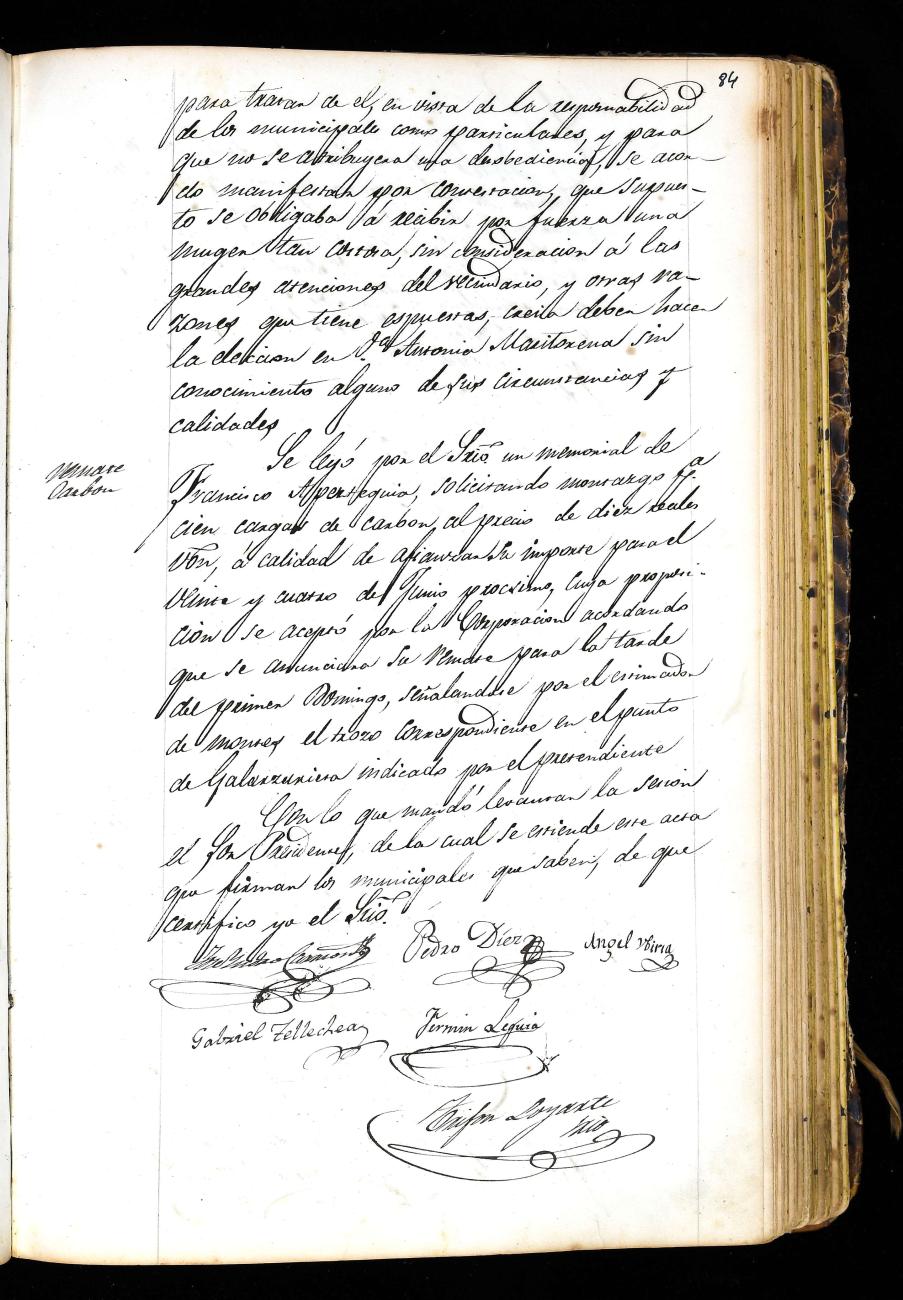 84
para tratar de el, en vista de la responsabilidad
de los municipales como particulares, y para
que no se atribuyera una desobediencia, se acor-
do manifestar por contestacion, que supues-
to se obligaba á recibir por fuerza una
muger tan costosa, sin consideracion á las
grandes atenciones del vecindario, y otras ra-
zones que tiene espuestas, creia deben hacer
la eleccion en D.ª Antonia Maritorena sin
conocimiento alguno de sus circunstancias y
calidades
Remate
Carbon
Se leyó por el Srio. un memorial de
Francisco Aperteguia, solicitando montazgo p.ª
cien cargas de carbon, al precio de diez reales
von, a calidad de afianzar su importe para el
veinte y cuatro de Junio procsimo, cuya proposi-
cion se aceptó por la Corporacion acordando
que se anunciara su remate para la tarde
del primer Domingo, señalandose por el estimador
de montes el trozo correspondiente en el punto
de Galarzurieta indicado por el pretendiente
Con lo que mandó levantar la sesion
el Sor Presidente, de la cual se estiende este acta
que firman los municipales que saben, de que
certifico yo el Srio.
Pedro Díez
Angel Ubiria
Gabriel Tellechea
Fermin Leguia
Trifon Loyarte
Srio